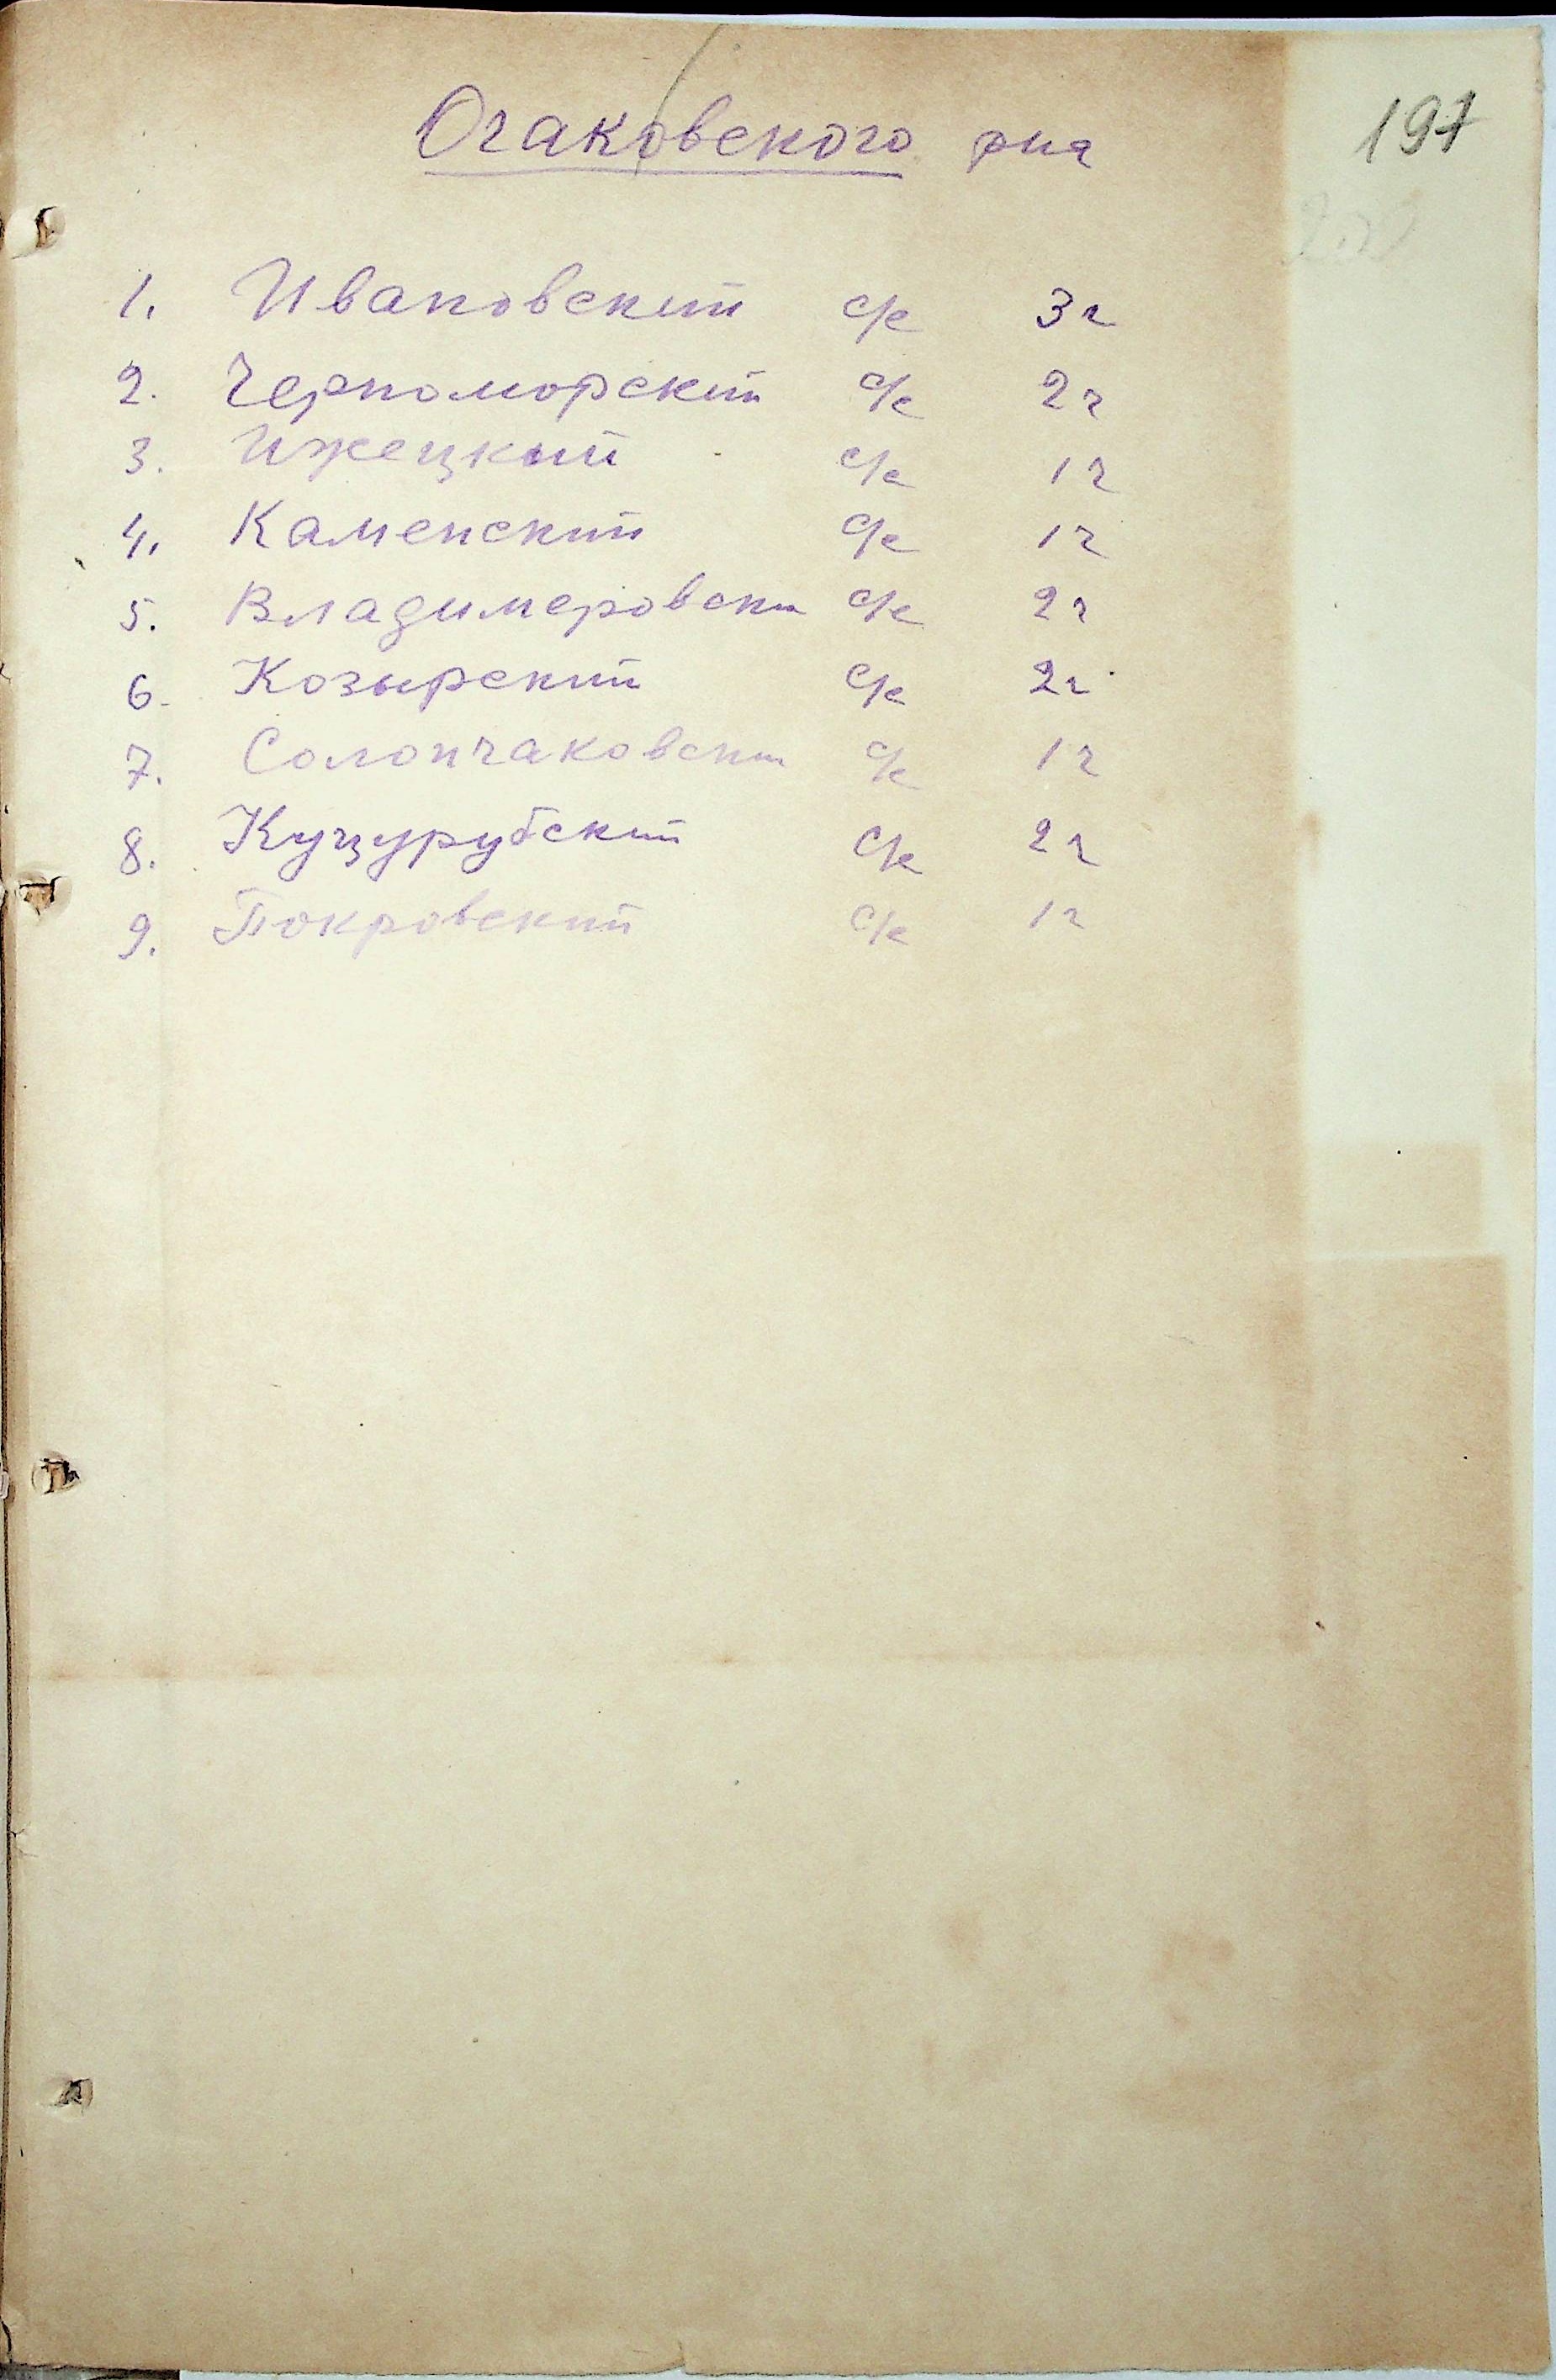 197
Очаковского рна
1. Ивановский с/с 3 ч
2. Черноморский с/с 2 ч
3. Ижецкый с/с 1 ч
4. Каменский с/с 1 ч
5. Владимеровски с/с 2 ч
6. Козырский с/с 2 ч
7. Солончаковски с/с 1 ч
8. Куцурубский с/с 2 ч
9. Покровский с/с 1 ч